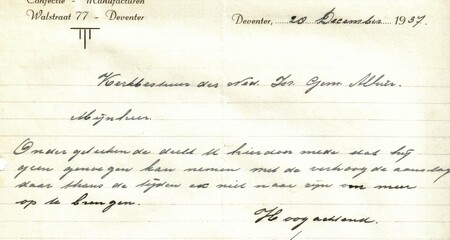 Confectie - Manufacturen
Walstraat 77 - Deventer
Deventer, 20 December 1937.
Kerkbestuur der Ned. Isr. Gem. Alhier.
Mijnheer.
Ondergeteekende deelt U hierdoor mede dat hij
geen genoegen kan nemen met de verhoogde aanslag
daar thans de tijden er niet naar zijn om meer
op te brengen.
Hoogachtend.